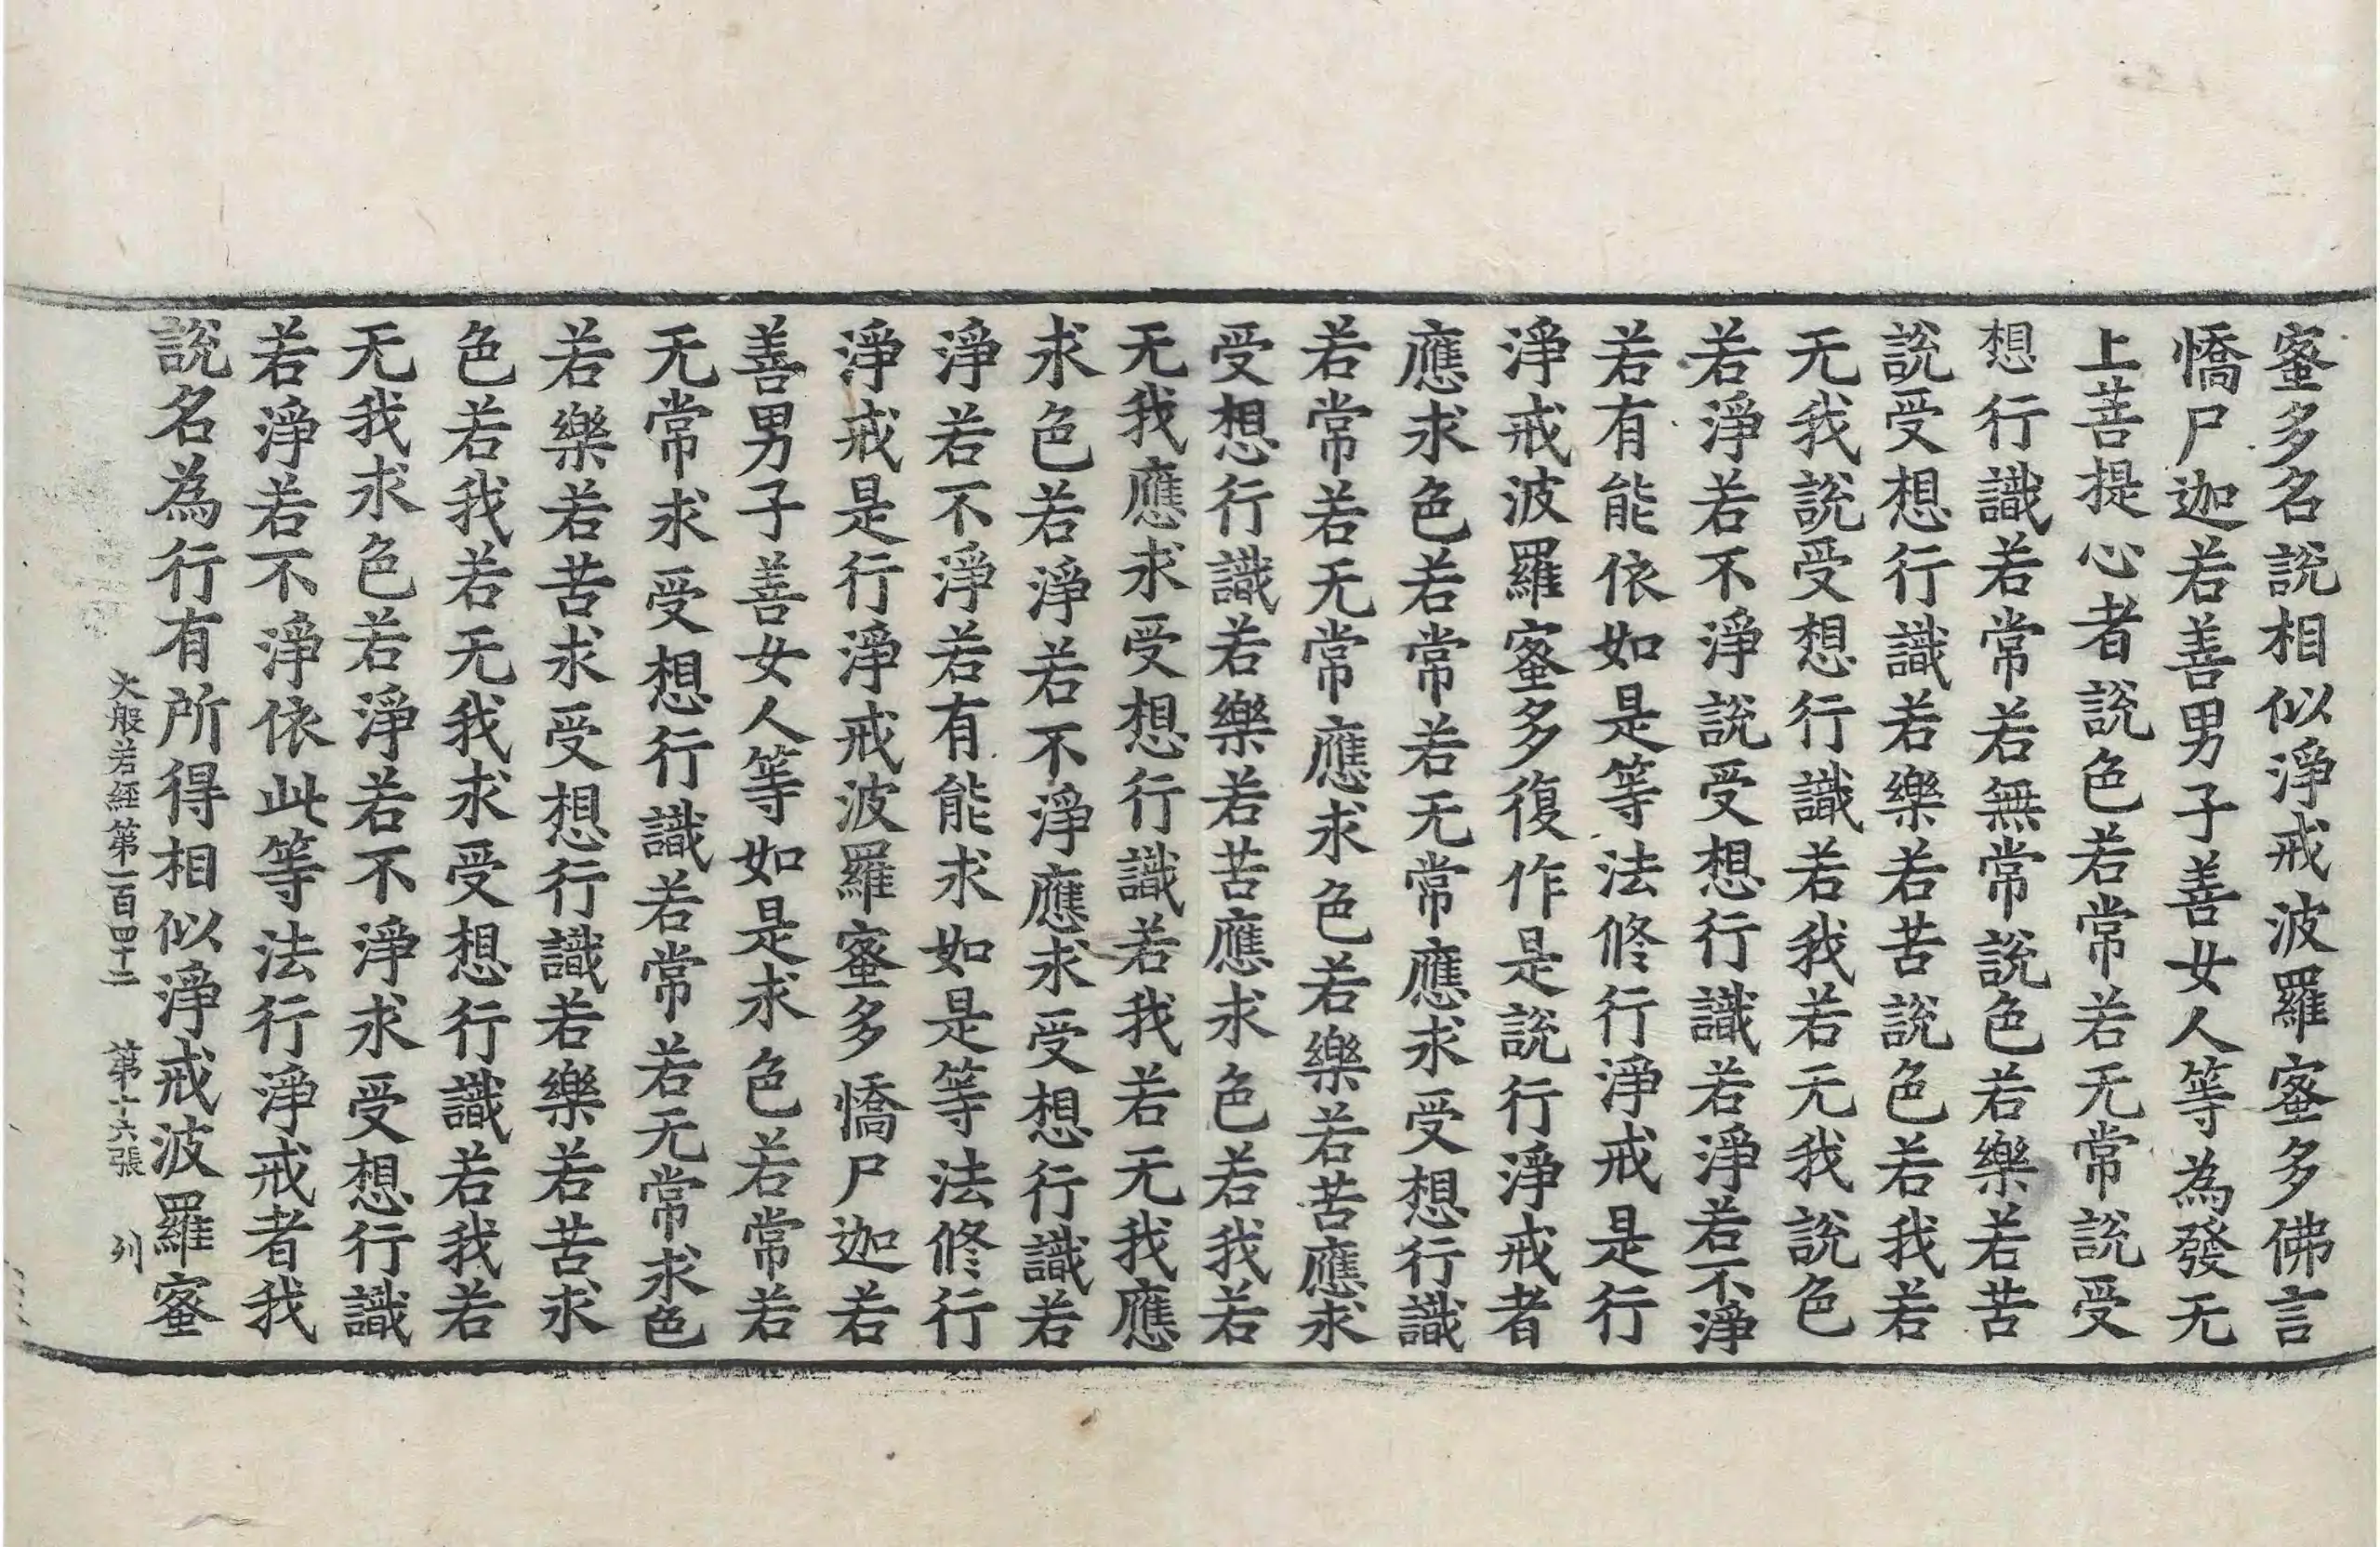 蜜多名說相似淨戒波羅蜜多佛言
憍尸迦若善男子善女人等為發无
上菩提心者說色若常若无常說受
想行識若常若無常說色若樂若苦
說受想行識若樂若苦說色若我若
无我說受想行識若我若无我說色
若淨若不淨說受想行識若淨若不淨
若有能依如是等法修行淨戒是行
淨戒波羅蜜多復作是說行淨戒者
應求色若常若无常應求受想行識
若常若无常應求色若樂若苦應求
受想行識若樂若苦應求色若我若
无我應求受想行識若我若无我應
求色若淨若不淨應求受想行識若
淨若不淨若有能求如是等法修行
淨戒是行淨戒波羅蜜多憍尸迦若
善男子善女人等如是求色若常若
无常求受想行識若常若无常求色
若樂若苦求受想行識若樂若苦求
色若我若无我求受想行識若我若
无我求色若淨若不淨求受想行識
若淨若不淨依此等法行淨戒者我
說名為行有所得相似淨戒波羅蜜
大般若經第一百四十二 第十六張 列